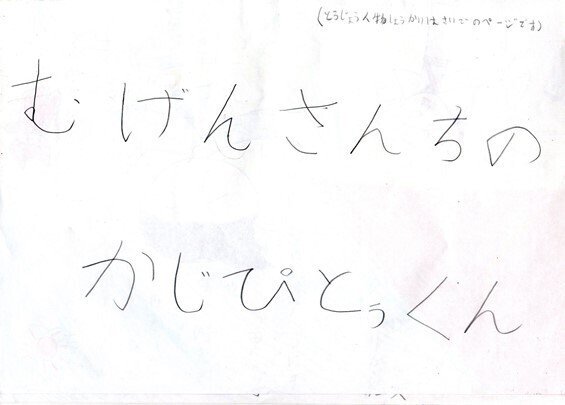 (とうじょう人物しょうかいはさいごのページです)
むげんさんちの
かじぴとぅくん